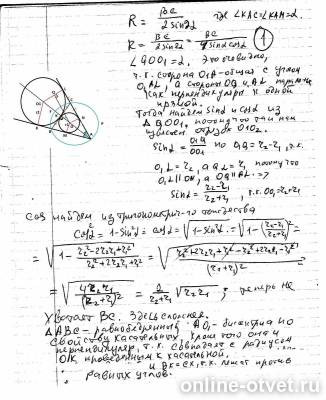 R = BC / 2sin2α где ∠KAC=∠KAM=α.
R = BC / 2sin2α = BC / 4sinα cosα ①
∠QOO1=α. Это очевидно,
т.к. сторона O1A-общая с углом
O1AL, а стороны OQ и AL паралле
как перпендикуляры к одной
прямой.
Тогда найдем sinα и cosα из
△QOO1, потому что там нам
известен отрезок O1O2.
sinα = O1Q / OO1 O1Q = r2-r1, т.к.
O1L = r2, а QL = r1 потому что
O1L || ON, а OQ || AL. =>
sinα = r2-r1 / r2+r1, т.к. OO1=r2+r1
cos найдем из тригонометрич-го тождества
cos²α = 1-sin²α => cosα = √1-sin²α = √1-(r2-r1 / r2+r1)² =
= √1 - r2²-2r2r1+r1² / r2²+2r2r1+r1² = √r2²+2r2r1+r1²-r2²+2r2r1-r1² / (r2+r1)² =
= √4r2r1 / (r2+r1)² = 2 / r2+r1 √r2r1 ; теперь не
хватает BC. Здесь сложнее.
△ABC - равнобедренный. AO1 - биссектриса по
свойству касательных, кроме того она и
перпендикуляр, т.к. совпадает с радиусом
OK проведенным к касательной.
и BK=CK, т.к. лежат против
равных углов.
online-otvet.ru